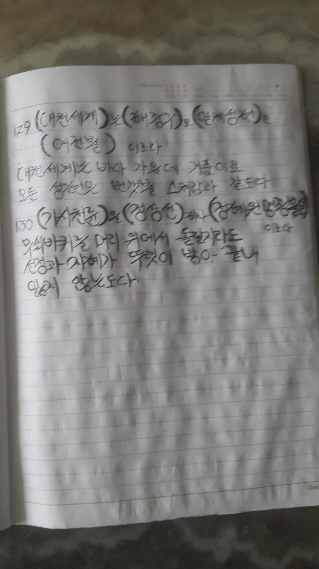 129. (대천세계)는 (해중구)요 (일체성현)은
(여전불) 이로다
대천세계는 바다 가운데 거품이요
모든 성현은 번갯불 스치람과 같도다
130. (가사철륜)을 (정상선)해나 (정혜원명종불실)
이로다
무쇠바퀴를 머리 위에서 돌릴지라도
선정과 지혜가 뚜렷이 밝아 끝내
잃지 않는도다.